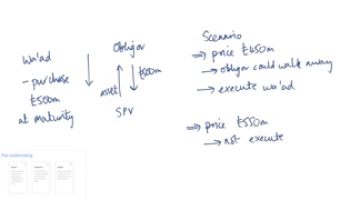 Wa'ad
- purchase
£500m
at maturity
Obligor
£500m
asset
SPV
Scenario
⇒ price £450m
→ obligor could walk away
→ execute wa'ad
⇒ price £550m
→ not execute
The Undertaking